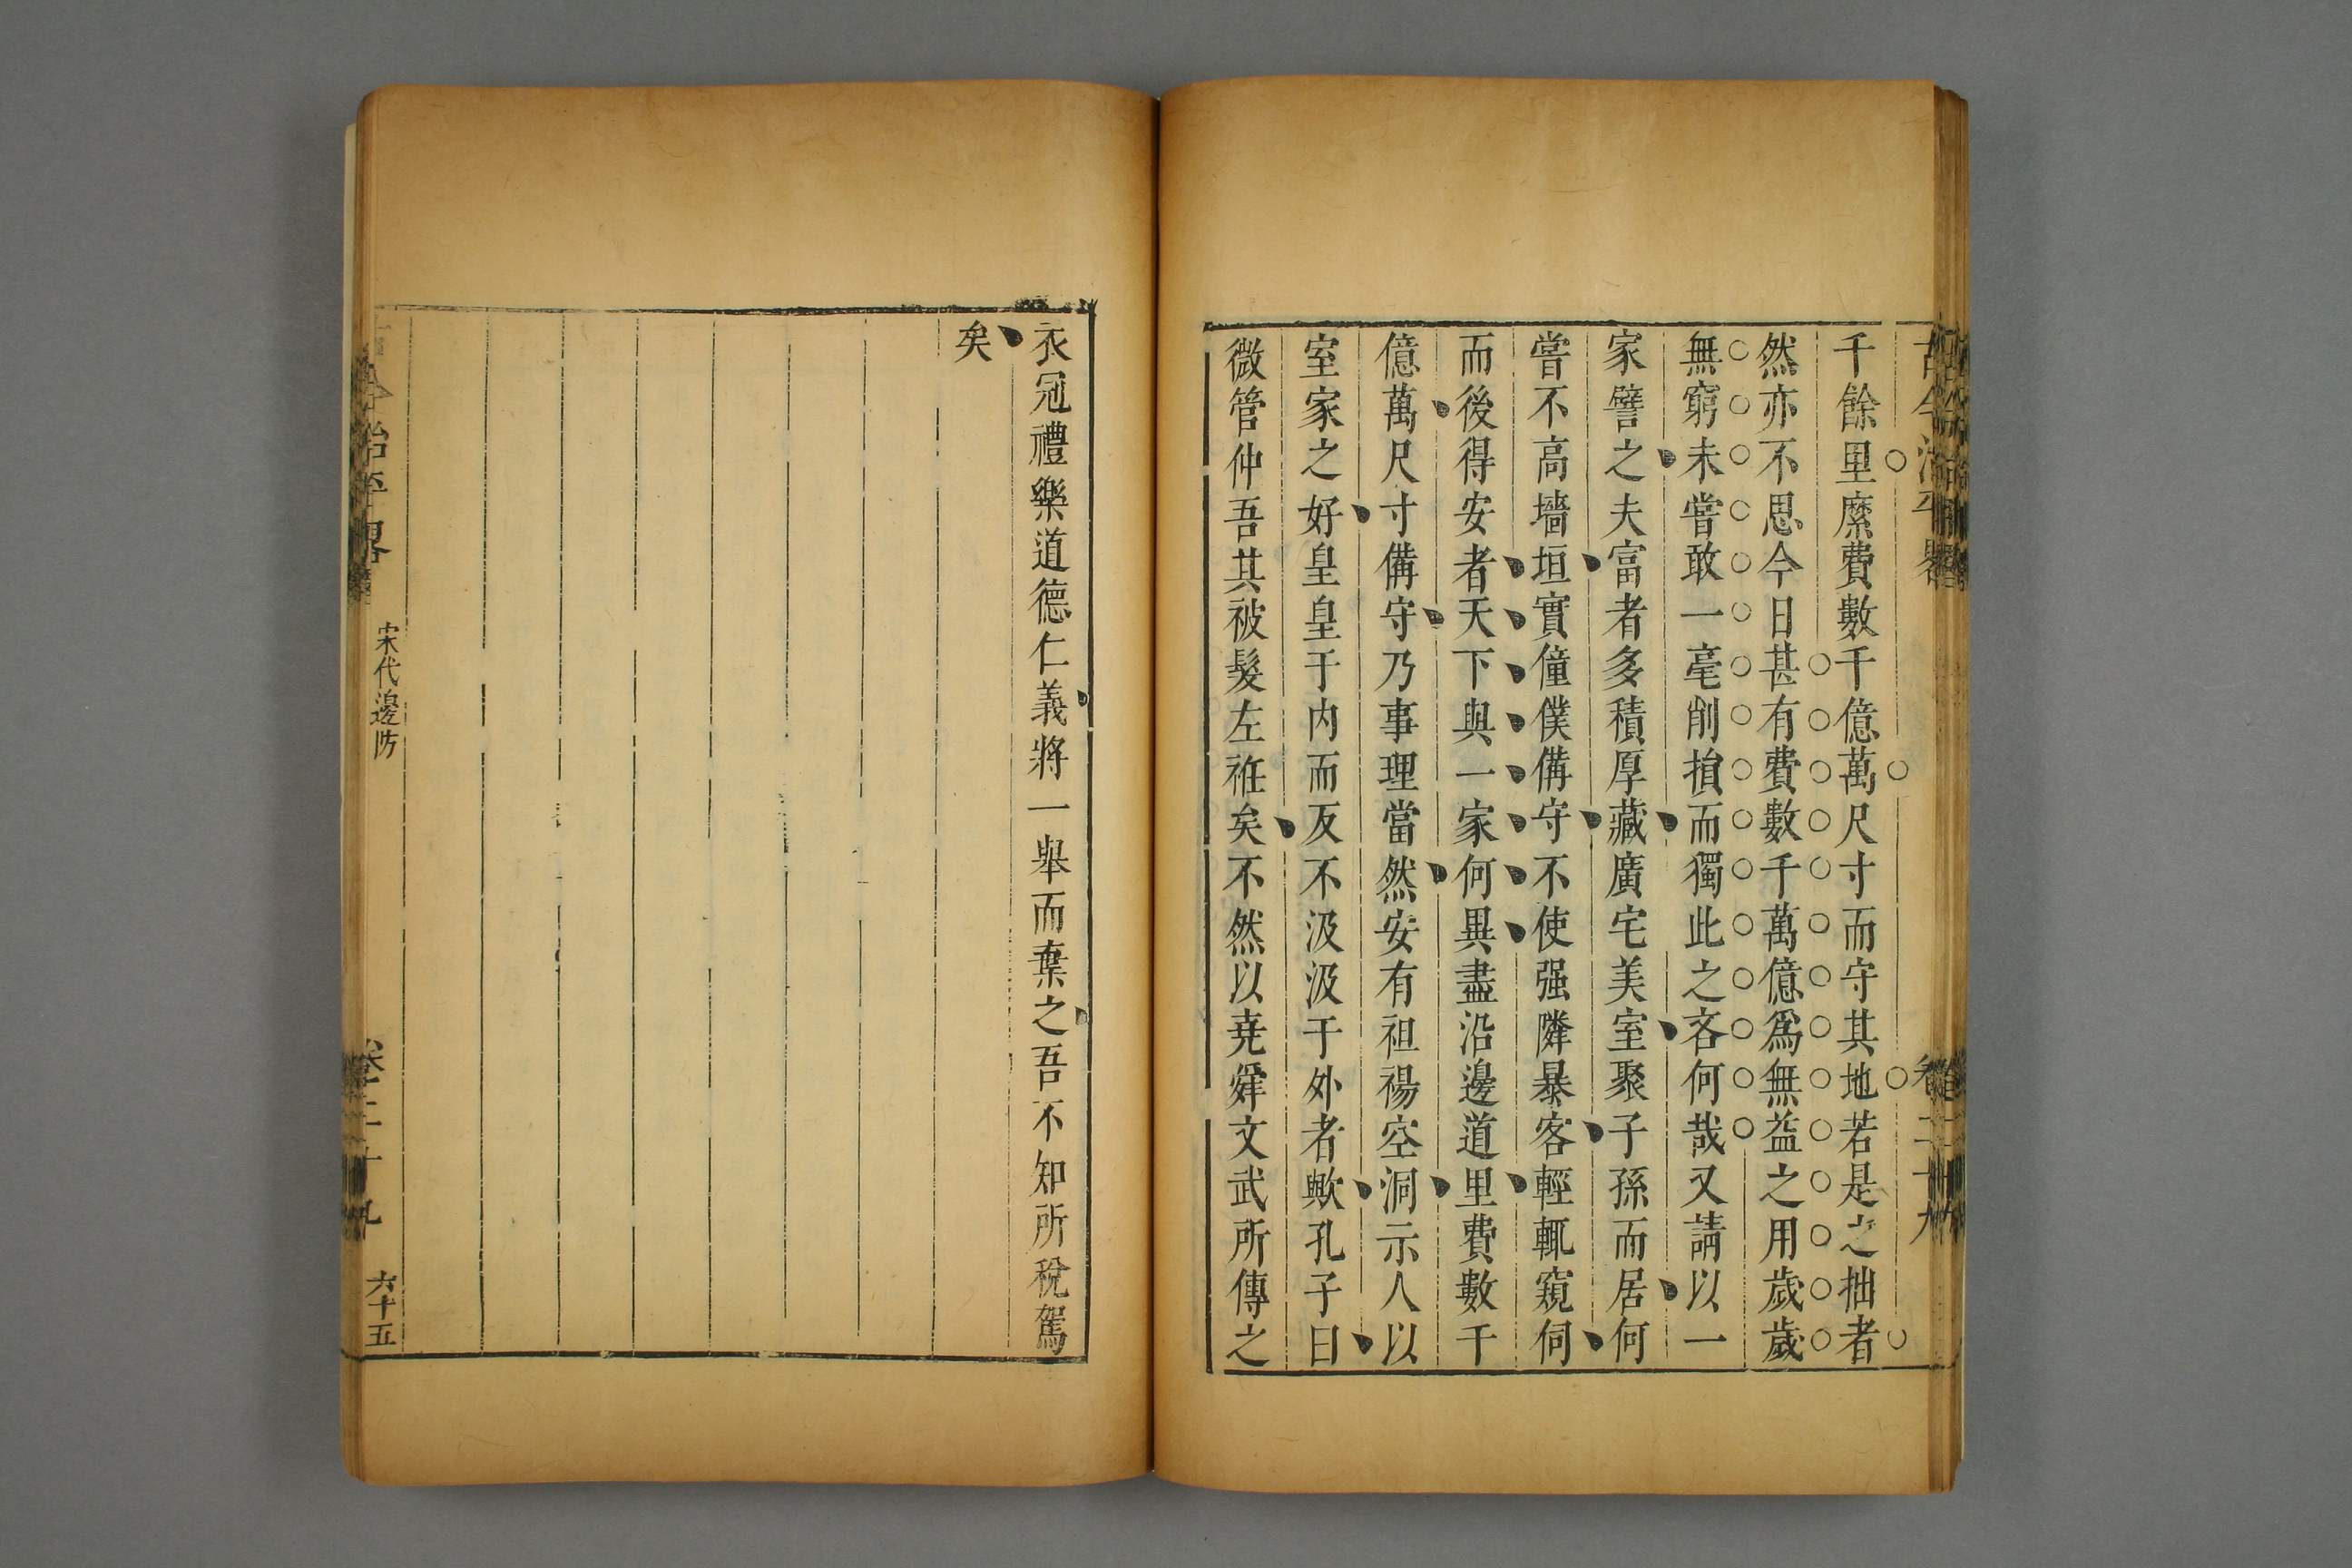 千餘里縻費數千億萬尺寸而守其地若是之拙者
然亦不思今日甚有費數千萬億爲無益之用歲歲
無窮未嘗敢一毫削損而獨此之吝何哉又請以一
家譬之夫富者多積厚藏廣宅美室聚子孫而居何
嘗不高墻垣實僮僕備守不使强隣暴客輕輒窺伺
而後得安者天下與一家何異盡沿邊道里費數千
億萬尺寸備守乃事理當然安有袒裼空洞示人以
室家之好皇皇于内而反不汲汲于外者歟孔子曰
微管仲吾其被髮左袵矣不然以堯舜文武所傳之
衣冠禮樂道德仁義將一舉而棄之吾不知所稅駕
矣
宋代邊防
六十五